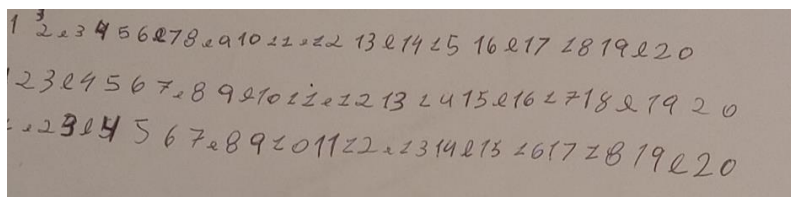 1 2 e 3 4 5 6 e 7 8 e 9 10 11 e 12 13 e 14 15 16 e 17 18 19 e 20
1 2 3 e 4 5 6 7 e 8 9 e 10 11 e 12 13 14 15 e 16 17 18 e 19 20
1 e 2 3 e 4 5 6 7 e 8 9 10 11 12 e 13 14 e 15 16 17 18 19 e 20